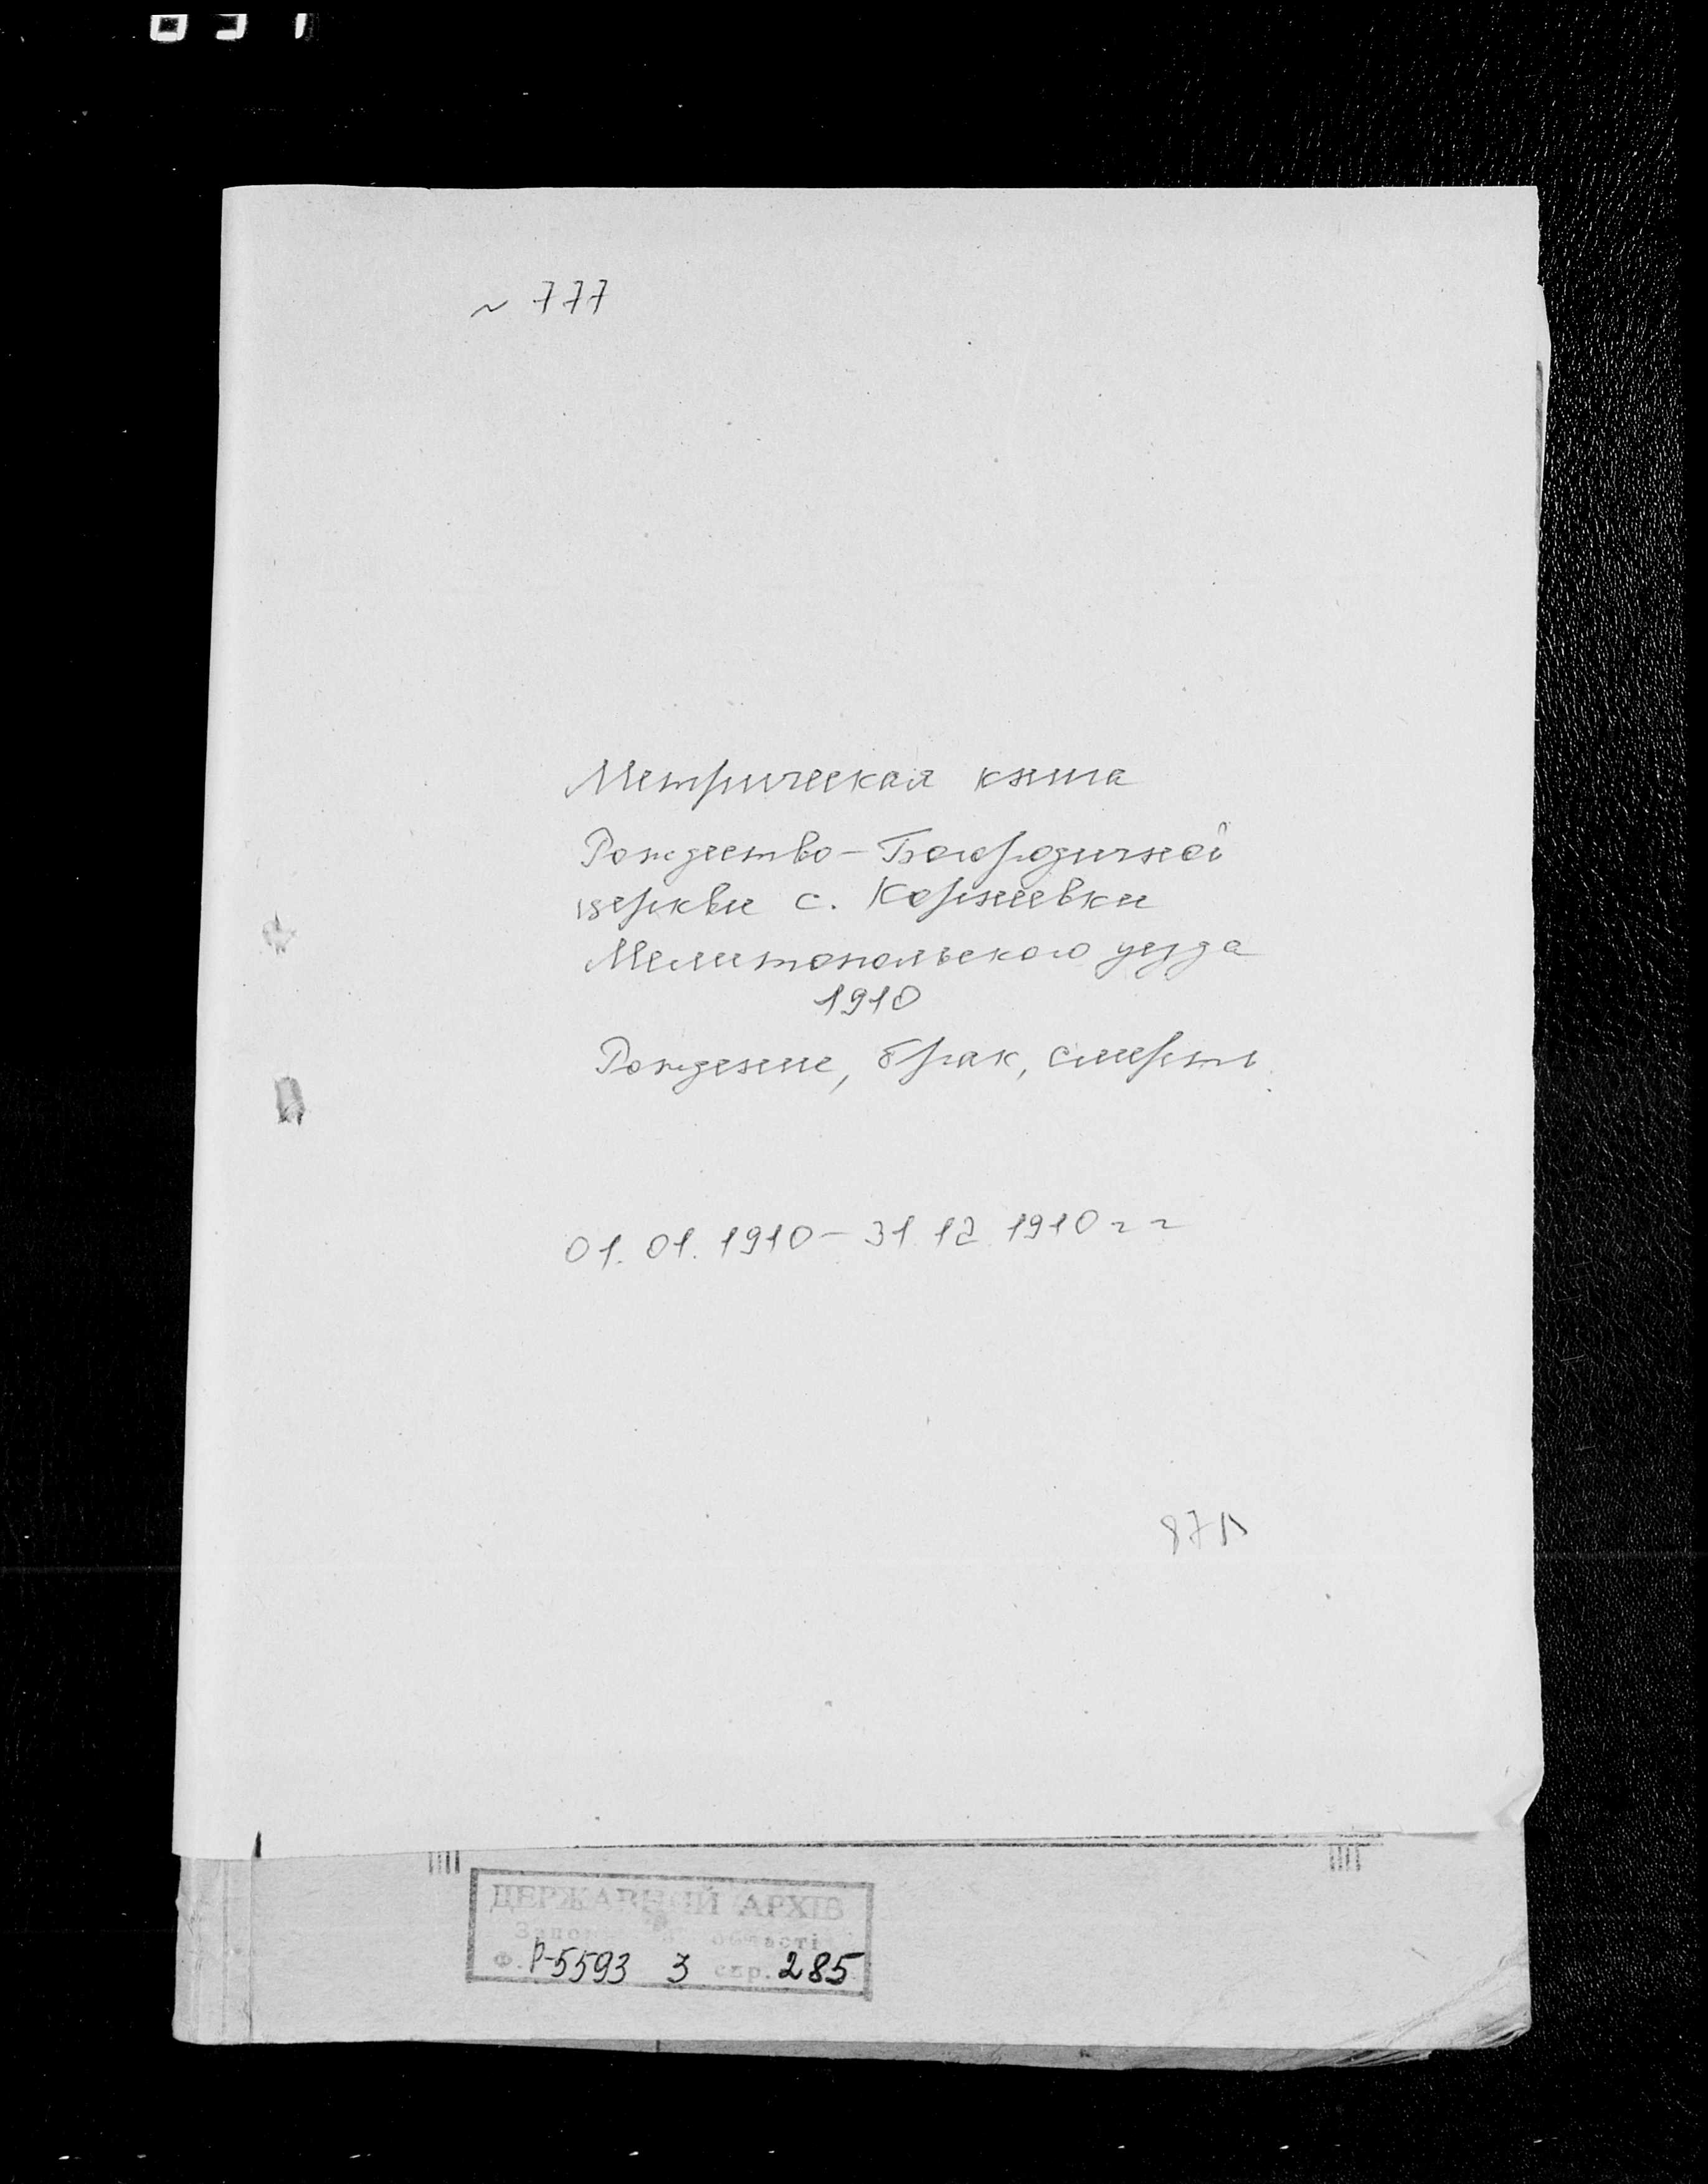 ~ 777
Метрическая книга
Рождество-Богородичной
церкви с. Корнеевки
Мелитопольского уезда
1910
Рождение, брак, смерть
01.01.1910 – 31 12 1910 г г
87 л
ДЕРЖАВНИЙ АРХІВ
області
Ф. Р-5593 3 спр. 285